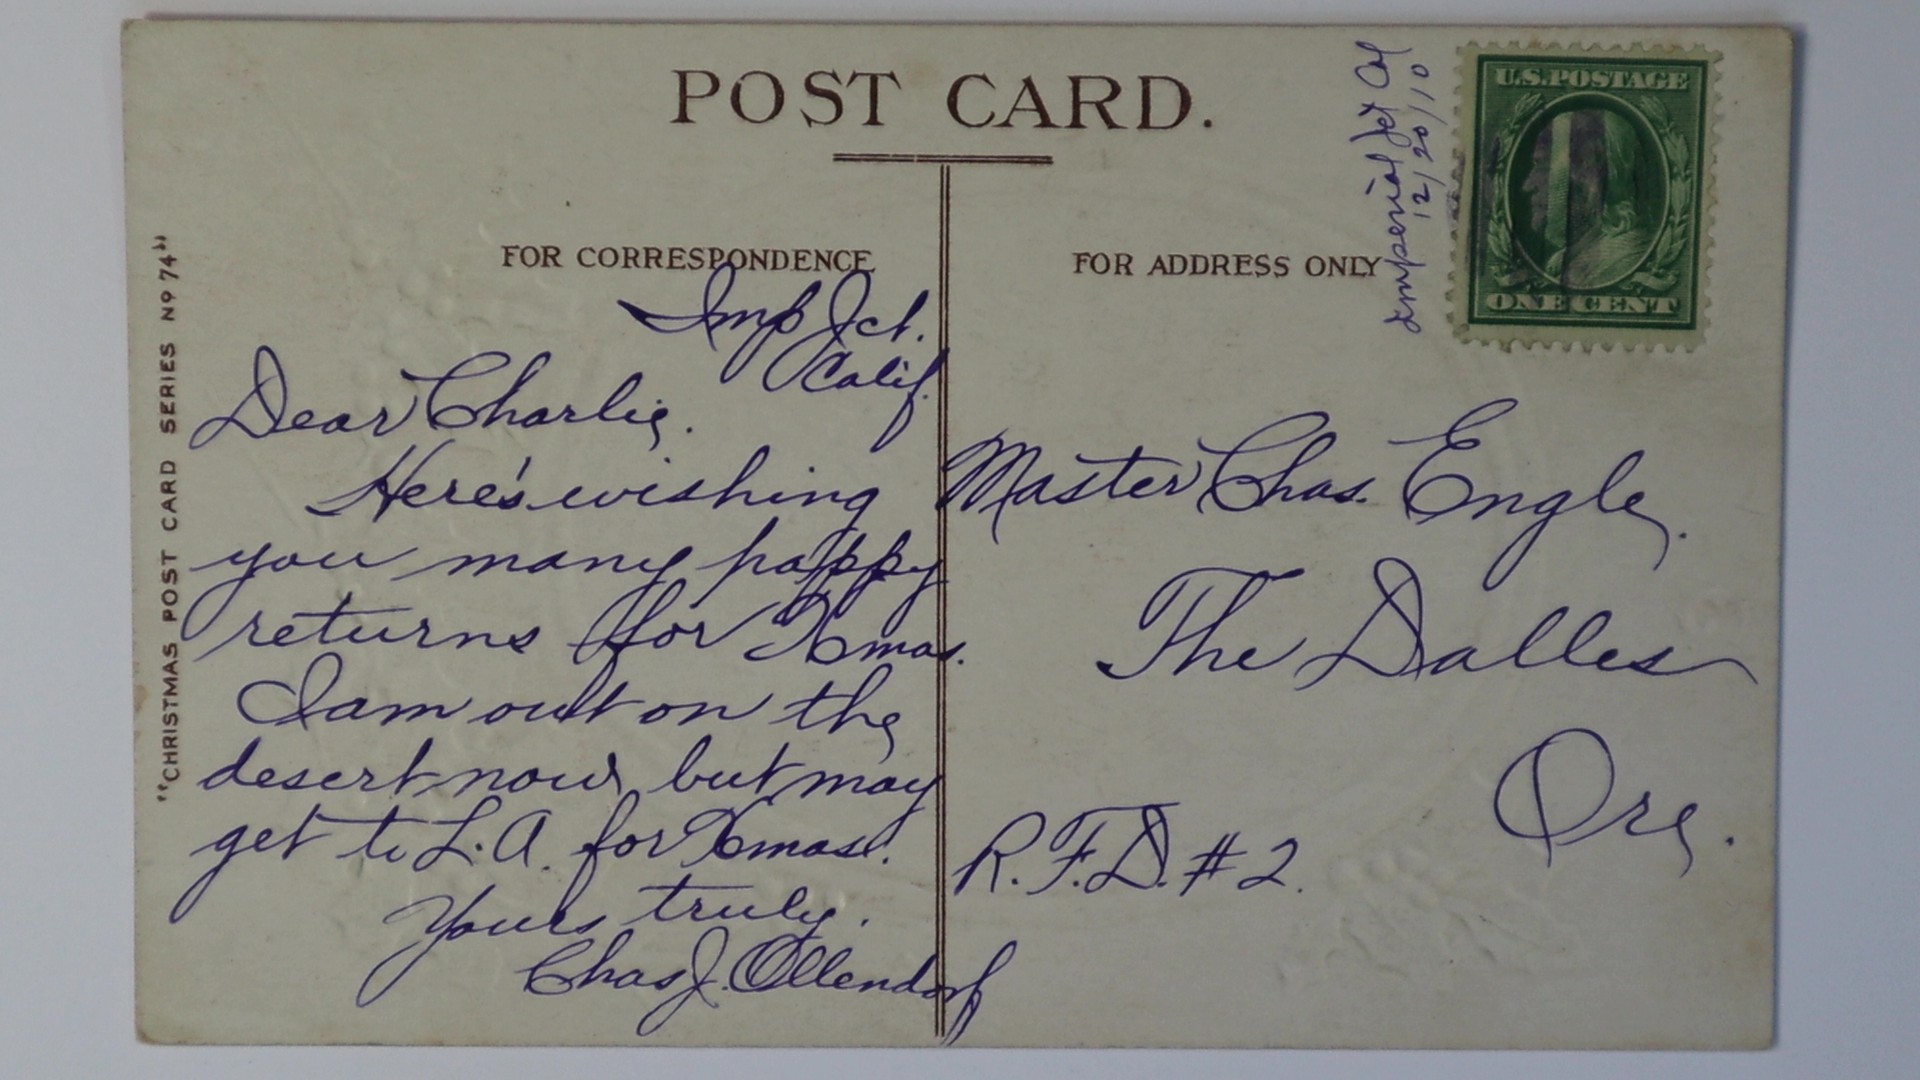 POST CARD.
Imperial Jct Cal
12/20/10
U.S. POSTAGE
ONE CENT
"CHRISTMAS POST CARD SERIES No 74"
FOR CORRESPONDENCE
Imp Jct.
Calif.
Dear Charlie.
Here's wishing
you many happy
returns for Xmas.
I am out on the
desert now but may
get to L.A. for Xmas.
Yours truly.
Chas J. Ollendorf
FOR ADDRESS ONLY
Master Chas. Engle.
The Dalles
Ore.
R.F.D. #2.